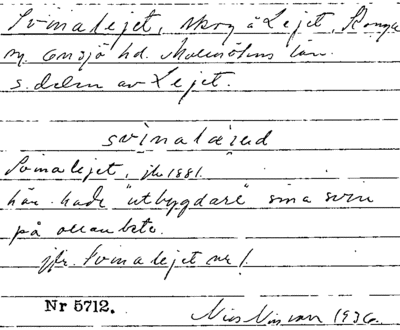 Svinalejet, skog å Lejet, Konga
sn. Onsjö hd. Malmöhus län.
s. delen av Lejet.
svinalæied
Svinalejet, jb 1881.
här hade "utbygdare" sina svin
på ollonbete.
jfr. Svinalejet nr 1.
Nr 5712.
1936.